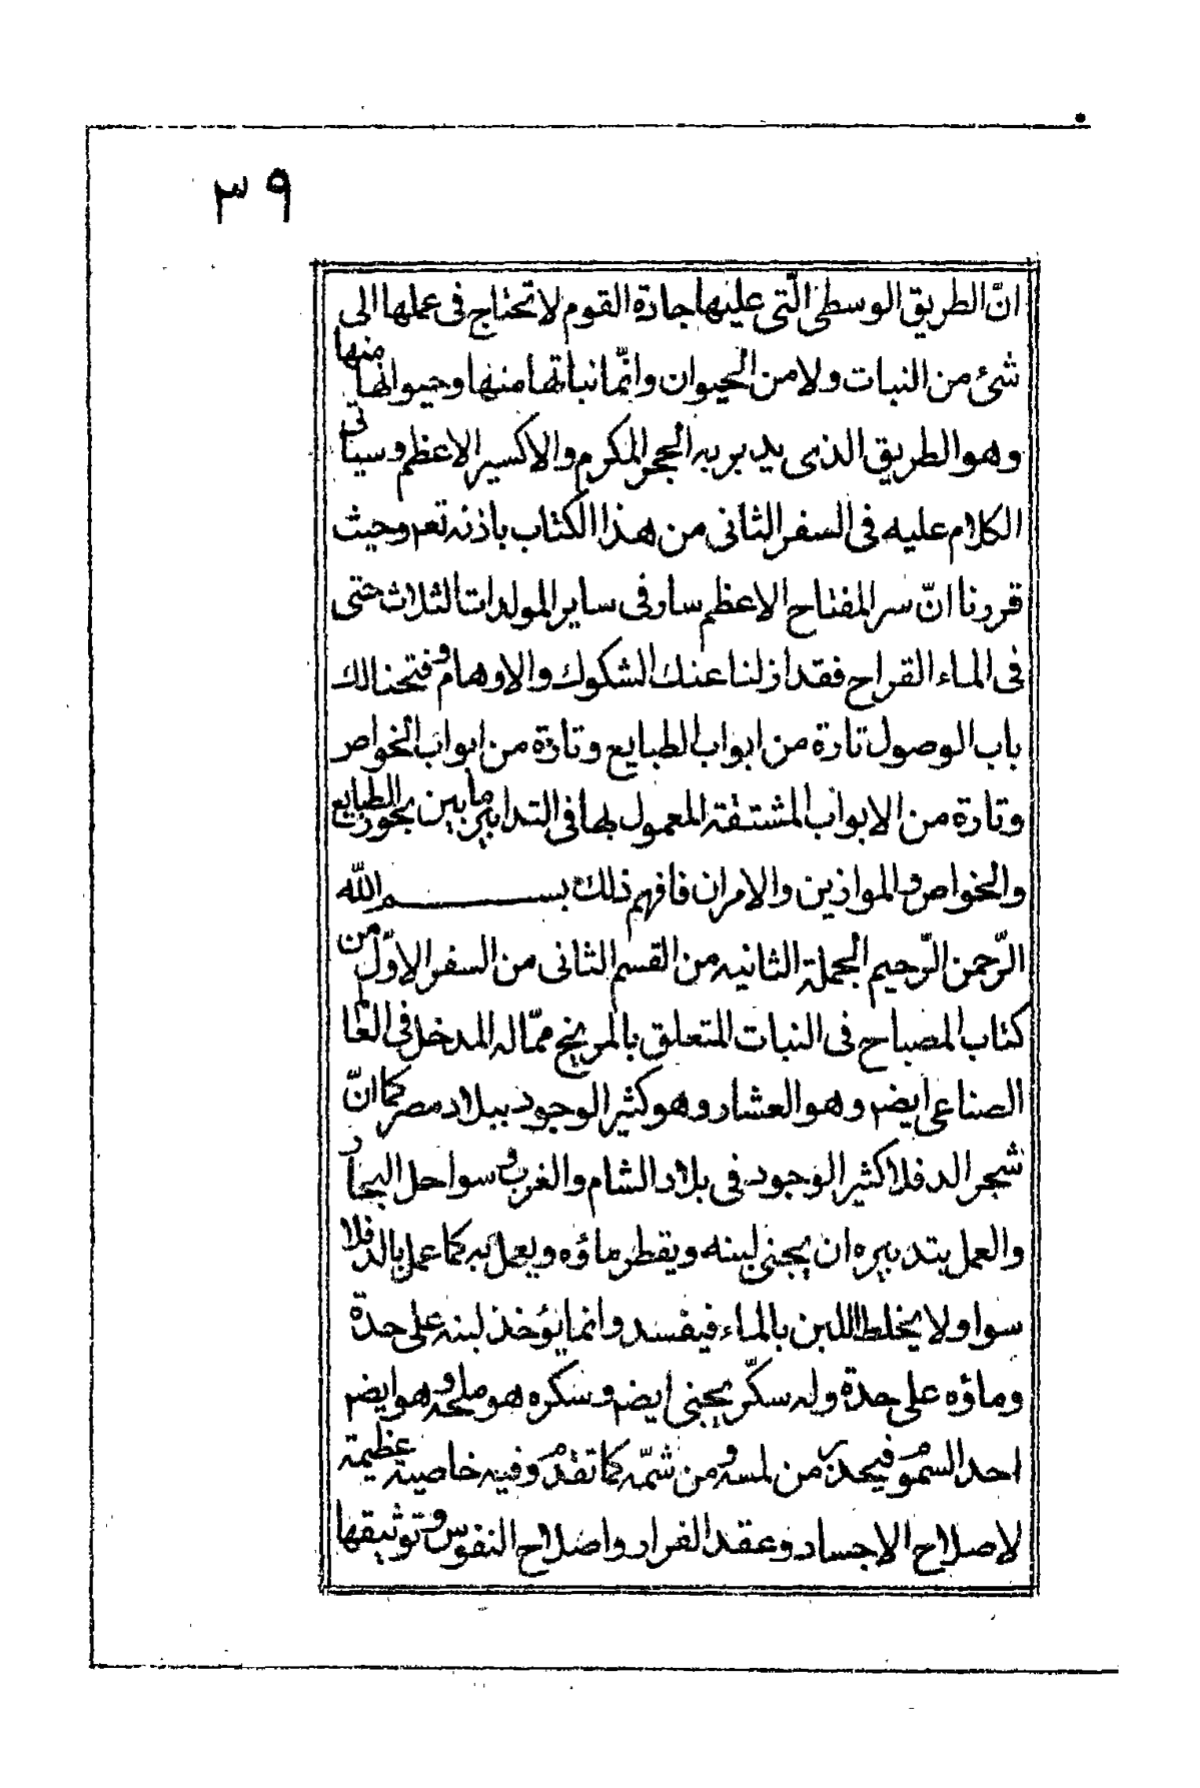 ٣٩
انّ الطريق الوسطى الّتى عليها جادة القوم لا تحتاج فى عملها الى
شئ من النبات ولا من الحيوان وانّما نباتها منها وحيوانها منها
وهو الطريق الذى يدبر به الحجر المكرم والاكسير الاعظم وسياتى
الكلام عليه فى السفر الثانى من هذا الكتاب باذنه تعم وحيث
قررنا انّ سر المفتاح الاعظم سار فى ساير المولدات الثلاث حتى
فى الماء القراح فقد ازلنا عنك الشكوك والاوهام وفتحنا لك
باب الوصول تارة من ابواب الطبايع وتارة من ابواب الخواص
وتارة من الابواب المشتقة المعمول بها فى التدابير ما بين بحور الطبايع
والخواص والموازين والامران فافهم ذلك بسم الله
الرّحمن الرّحيم الجملة الثانيه من القسم الثانى من السفر الاوّل من
كتاب المصباح فى النبات المتعلق بالمريخ ممّا له المدخل فى العا
الصناعى ايضم وهو العشار وهو كثير الوجود ببلاد مصر كما انّ
شجر الدفلا كثير الوجود فى بلاد الشام والغرب و سواحل البحار
والعمل بتدبيره ان يجنى لبنه ويقطر ماؤه ويعمل به كما عمل بالدفلا
سوا ولا يخلط اللبن بالماء فيفسد وانما يؤخذ لبنه على حدة
وماؤه على حدة وله سكّر يجنى ايضم وسكره هو ملحه وهو ايضم
احد السموم فيحذر من لمسه ومن شمّه كما تقدم وفيه خاصية عظيمة
لاصلاح الاجساد وعقد الفرار واصلاح النفوس وتوثيقها